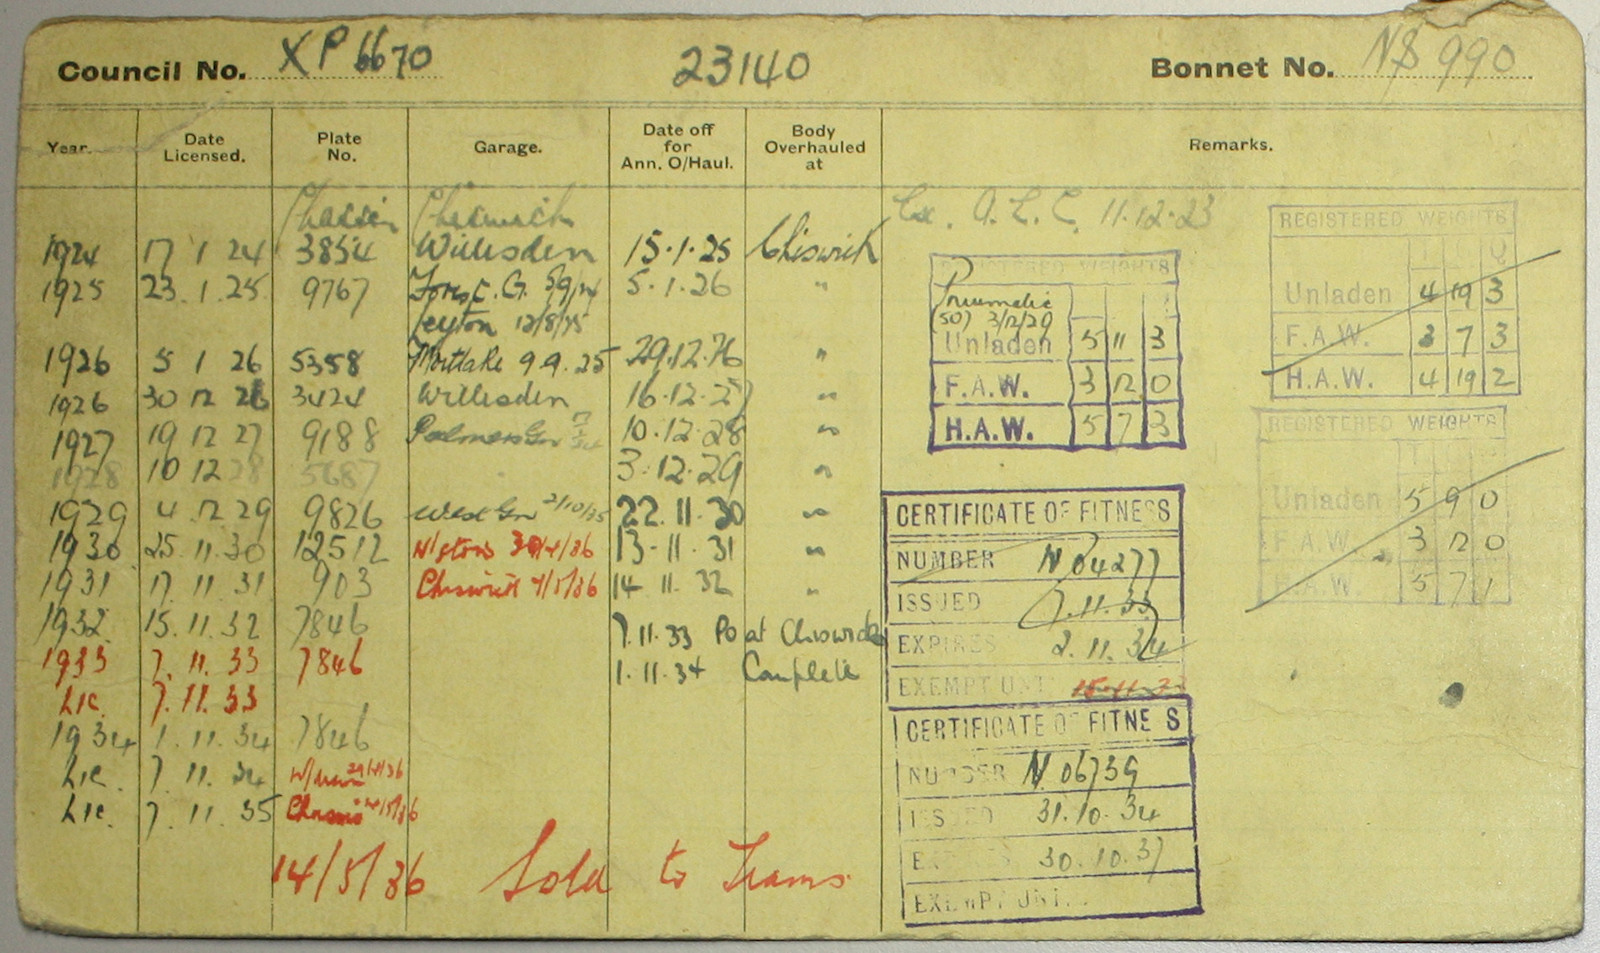 Council No. XP 6670 23140 Bonnet No. NS 990
Year. Date Licensed. Plate No. Garage. Date off for Ann. O/Haul. Body Overhauled at Remarks.
Chassis Chiswick Ex. A.L.C. 11.12.23
1924 17 1 24 3854 Willesden 15.1.25 Chiswick
1925 23.1.25 9767 Forest. G. 5/9/24 5.1.26 "
Leyton 12/8/25
1926 5 1 26 5358 Mortlake 9.9.25 29.12.26 "
1926 30 12 26 3424 Willesden 16.12.27 "
1927 19 12 27 9188 Palmers Grn 10.12.28 "
1928 10 12 28 5687 3.12.29 "
1929 4 12 29 9826 West Grn 2/10/35 22.11.30 "
1930 25.11.30 12512 13-11-31 "
1931 17 11 31 903 Chiswick 4/5/36 14 11 32 "
1932 15.11.32 7846 7.11.33 Po at Chiswick
1933 7.11.33 7846 1.11.34 Complete
Lic. 7.11.33
1934 1.11.34 7846
Lic. 7.11.34
Lic. 7.11.35 Chassis 4/5/36
14/5/36 Sold to Trams
REGISTERED WEIGHTS
Pneumatic
(50) 3/12/29
Unladen 5 11 3
F.A.W. 3 12 0
H.A.W. 5 7 3
REGISTERED WEIGHTS
T C Q
Unladen 4 19 3
F.A.W. 3 7 3
H.A.W. 4 19 2
REGISTERED WEIGHTS
Unladen 5 9 0
F.A.W. 3 12 0
H.A.W. 5 7 1
CERTIFICATE OF FITNESS
NUMBER N 04277
ISSUED 7.11.33
EXPIRES 2.11.34
EXEMPT UNT. 15.11.33
CERTIFICATE OF FITNESS
NUMBER N 06739
ISSUED 31.10.34
EXPIRES 30.10.37
EXEMPT UNT.